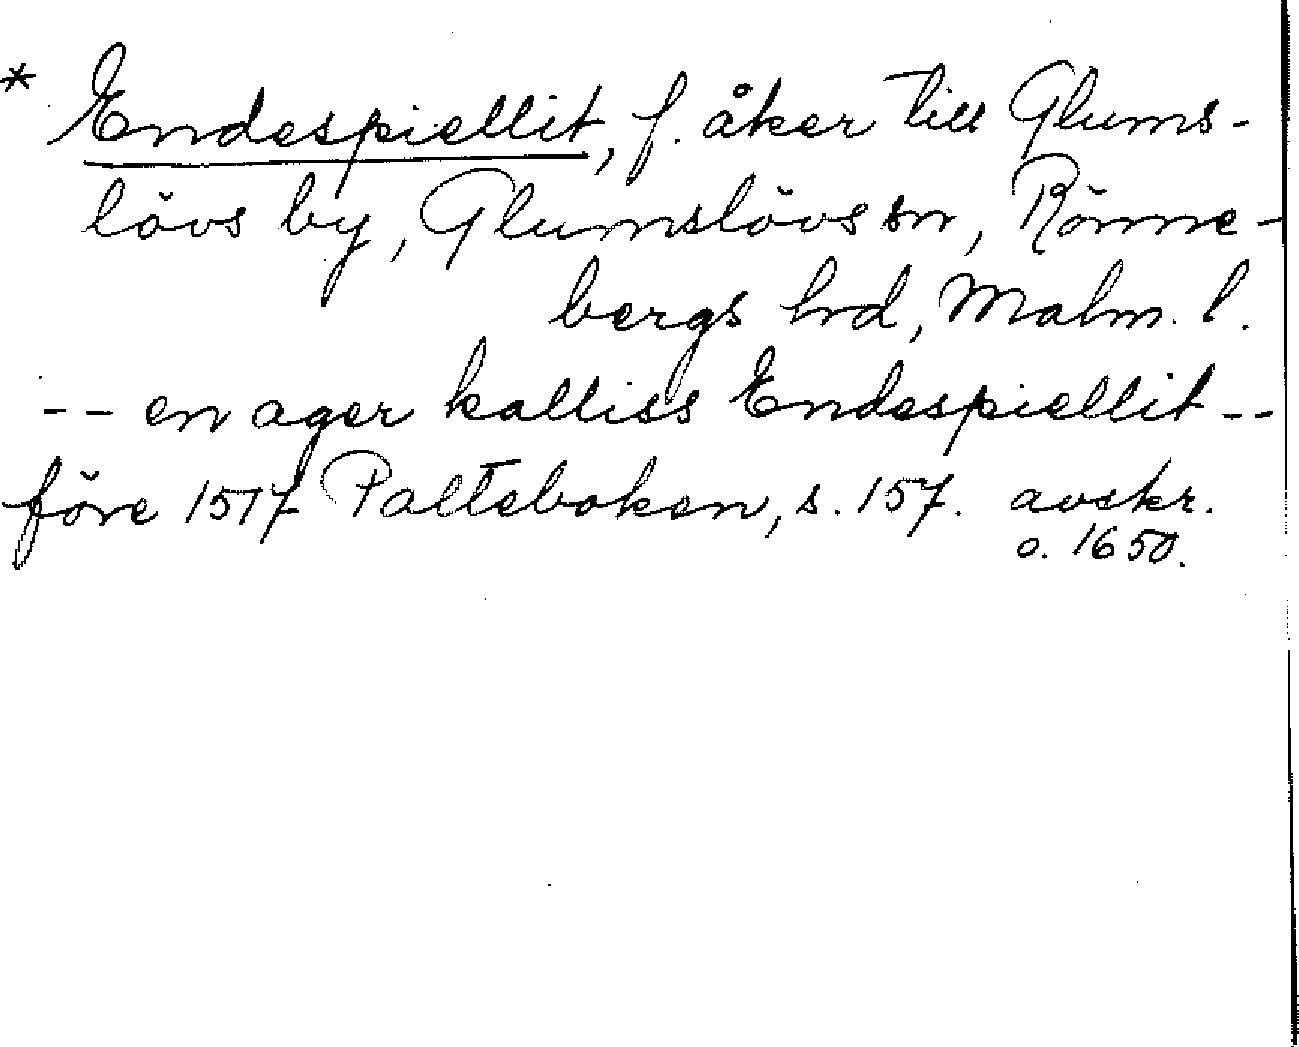 * Endespiellit, f. åker till Glums-
lövs by, Glumslövs sn, Rönne-
bergs hrd, Malm. l.
-- en ager kalliss Endespiellit --
före 1517 Palteboken, s. 157. avskr.
o. 1650.